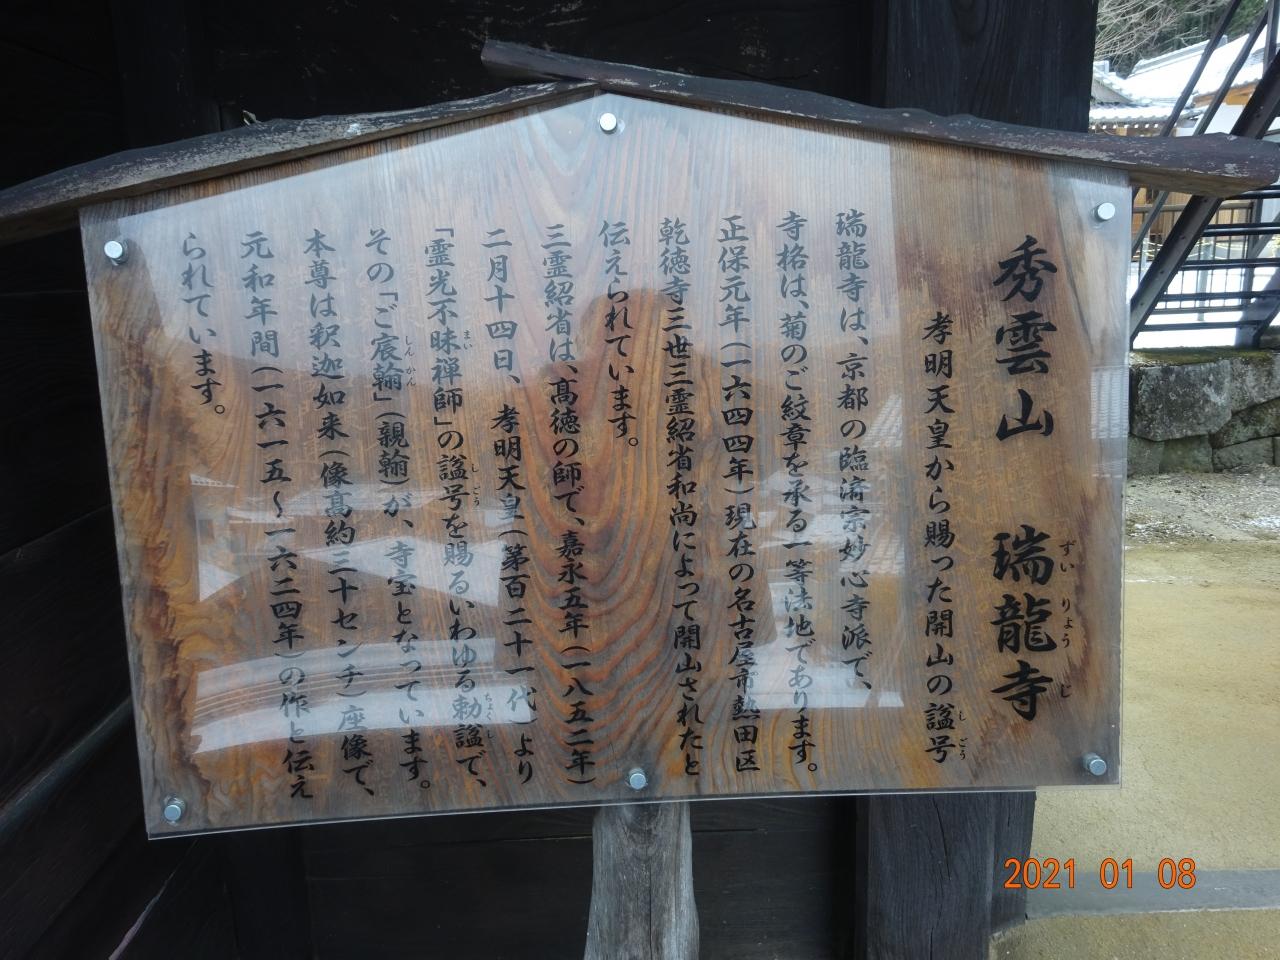 秀雲山　瑞龍寺
ずいりょうじ
孝明天皇から賜った開山の諡号
しごう
瑞龍寺は、京都の臨済宗妙心寺派で、
寺格は、菊のご紋章を承る一等法地であります。
正保元年(一六四四年)現在の名古屋市熱田区
乾徳寺三世三霊紹省和尚によって開山されたと
伝えられています。
三霊紹省は、髙徳の師で、嘉永五年(一八五二年)
二月十四日、孝明天皇(第百二十一代)より
「霊光不昧禅師」の諡号を賜るいわゆる勅諡で、
まい
しごう
ちょくし
その「ご宸翰」(親翰)が、寺宝となっています。
しんかん
本尊は釈迦如来(像髙約三十センチ)座像で、
元和年間(一六一五〜一六二四年)の作と伝え
られています。
2021 01 08